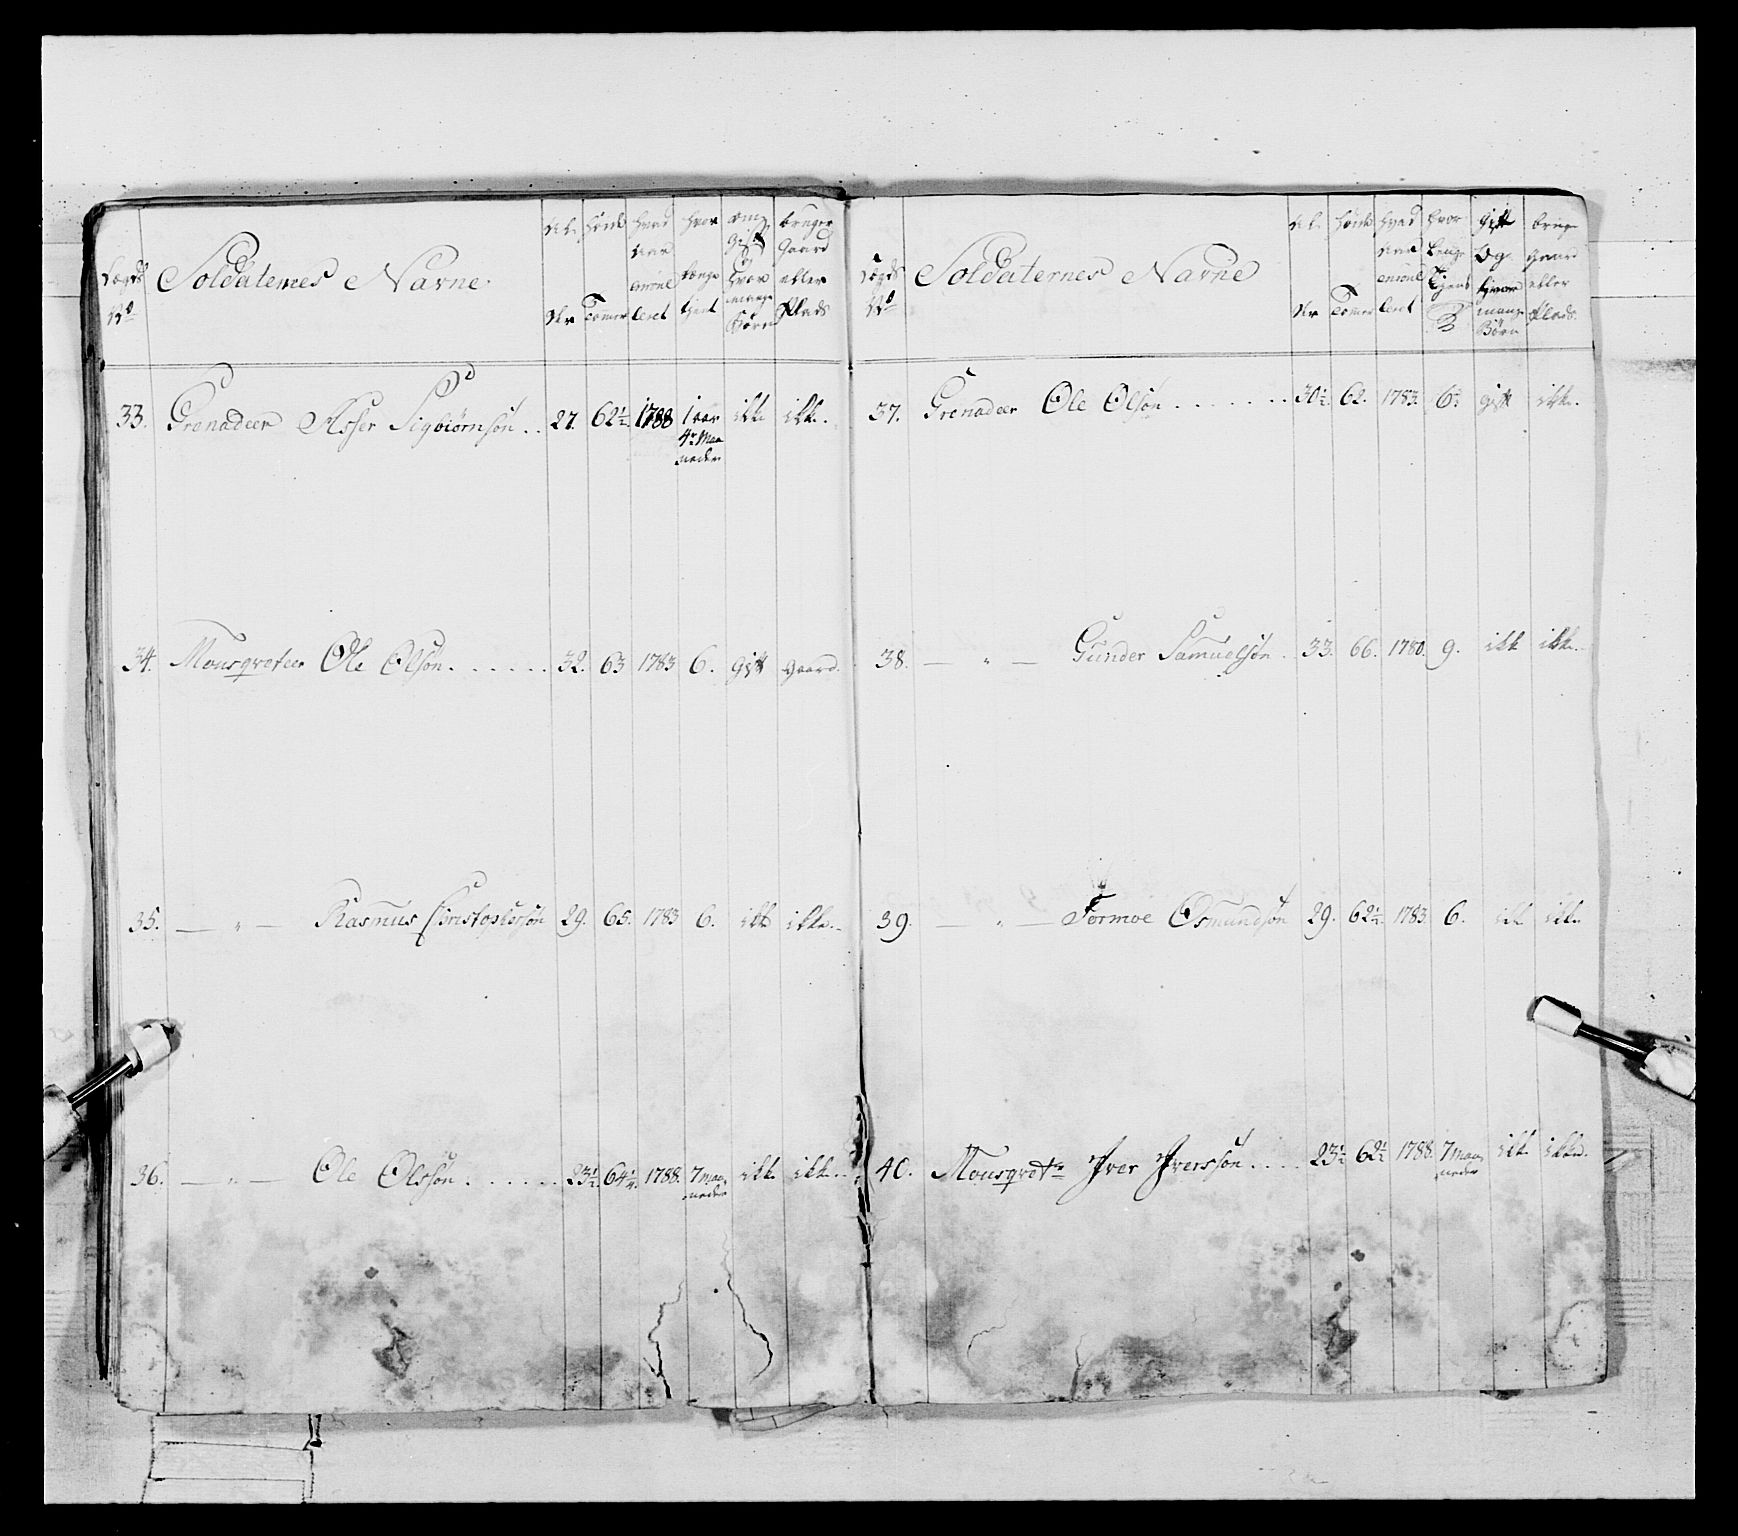 Lægds No Soldaternes Navne Al der Høide Tomer hvad Aar enroul leret hvor længe tient om gift og hvor mange Børn bruger Gaard eller Plads
33. Grenadeer Asser Sigbiörnsön .. 27. 62½. 1788 1 aar ikke ikke.
4r Maa
neder
34. Mousqveteer Ole Olsön ...... 32. 63 1783 6. gift gaard.
35. — " — Rasmus Christophersön 29. 65. 1783 6. ikke ikke.
36. — " — Ole Olssön ...... 23½. 64¼. 1788. 7 maa ikke ikke.
neder
Lægds No Soldaternes Navne Al der Høide Tomer hvad Aar enroul leret hvor lenge tjent Gift og hvor mange Børn bruger Gaard eller Plads
37. Grenadeer Ole Olsön ....... 30½. 62. 1783. 6½ gift ikke.
38. — " — Gunder Samuelsön . 33. 66. 1780. 9. ikke ikke.
39. — " — Tormoe Osmundsön 29. 62½. 1783. 6. ikke ikke
40. Mousqvetr Iver Iverssön .... 23½ 62½ 1788. 7 maa ikke ikke.
neder